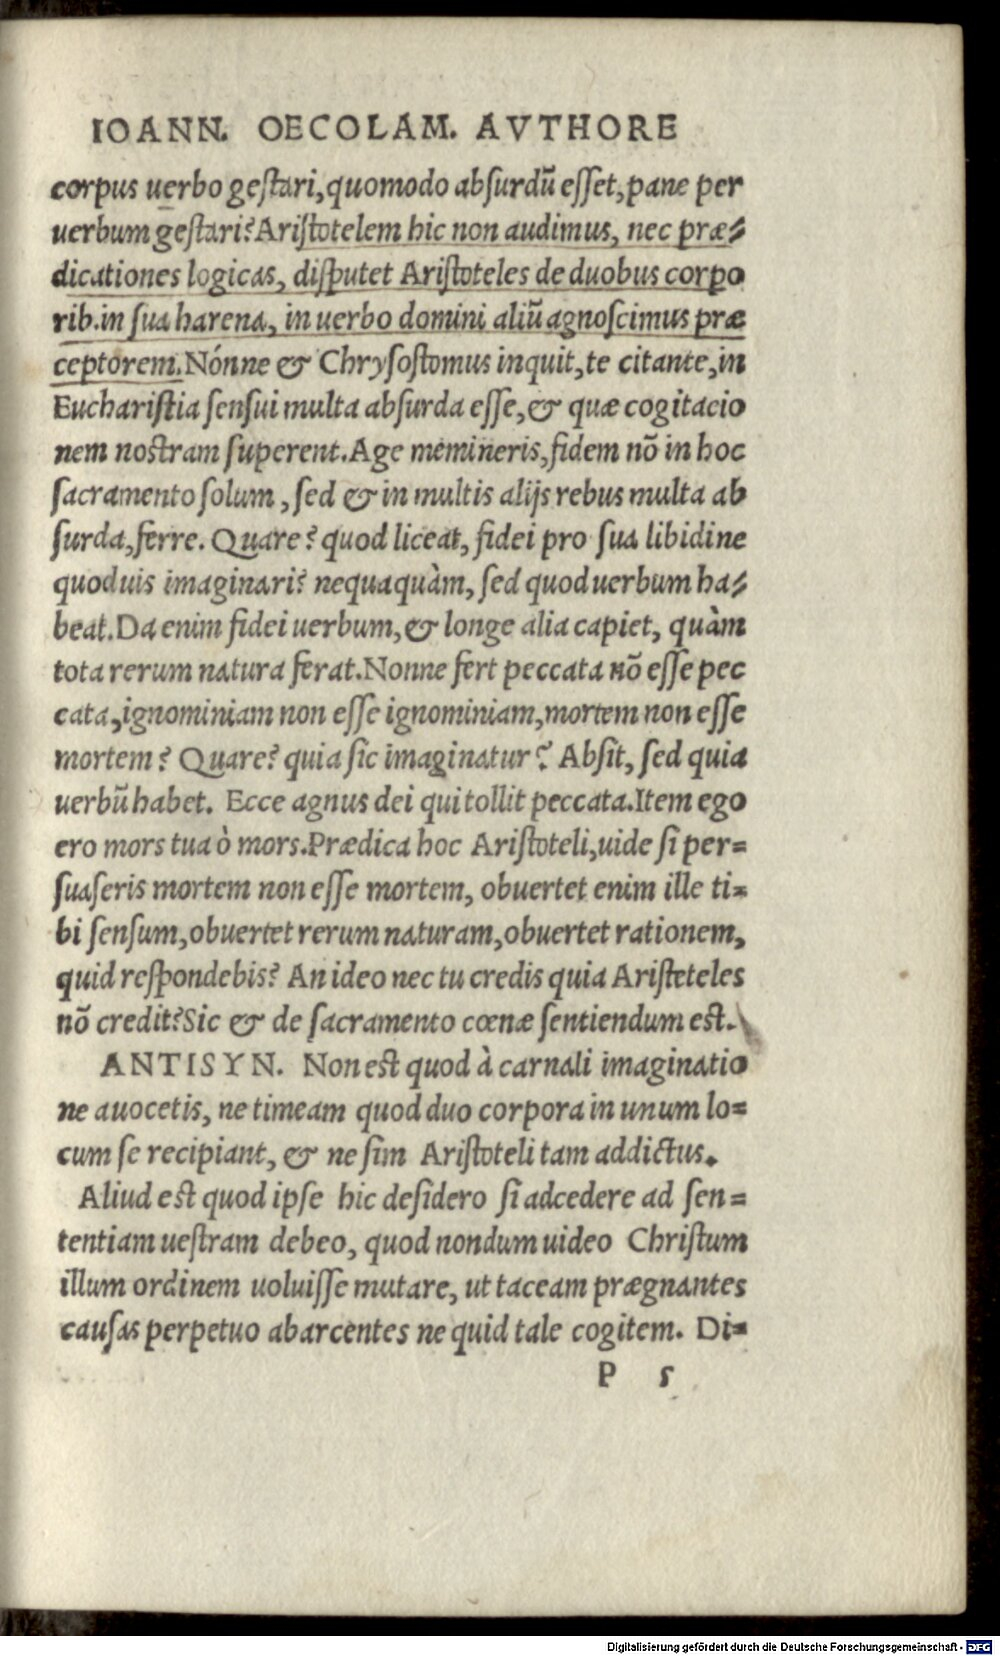 IOANN. OECOLAM. AVTHORE
corpus uerbo gestari, quomodo absurdū esset, pane per
uerbum gestari? Aristotelem hic non audimus, nec præ-
dicationes logicas, disputet Aristoteles de duobus corpo
rib. in sua harena, in uerbo domini aliū agnoscimus præ
ceptorem. Nónne & Chrysostomus inquit, te citante, in
Eucharistia sensui multa absurda esse, & quæ cogitacio
nem nostram superent. Age memineris, fidem nō in hoc
sacramento solum, sed & in multis alijs rebus multa ab
surda, ferre. Quare? quod liceat, fidei pro sua libidine
quoduis imaginari? nequaquàm, sed quod uerbum ha-
beat. Da enim fidei uerbum, & longe alia capiet, quàm
tota rerum natura ferat. Nonne fert peccata nō esse pec
cata, ignominiam non esse ignominiam, mortem non esse
mortem? Quare? quia sic imaginatur? Absit, sed quia
uerbū habet. Ecce agnus dei qui tollit peccata. Item ego
ero mors tua ò mors. Prædica hoc Aristoteli, uide si per=
suaseris mortem non esse mortem, obuertet enim ille ti=
bi sensum, obuertet rerum naturam, obuertet rationem,
quid respondebis? An ideo nec tu credis quia Aristeteles
nō credit? Sic & de sacramento cœnæ sentiendum est.
ANTISYN. Non est quod à carnali imaginatio
ne auocetis, ne timeam quod duo corpora in unum lo=
cum se recipiant, & ne sim Aristoteli tam addictus.
Aliud est quod ipse hic desidero si adcedere ad sen=
tentiam uestram debeo, quod nondum uideo Christum
illum ordinem uoluisse mutare, ut taceam prægnantes
causas perpetuo abarcentes ne quid tale cogitem. Di=
P 5
Digitalisierung gefördert durch die Deutsche Forschungsgemeinschaft - DFG